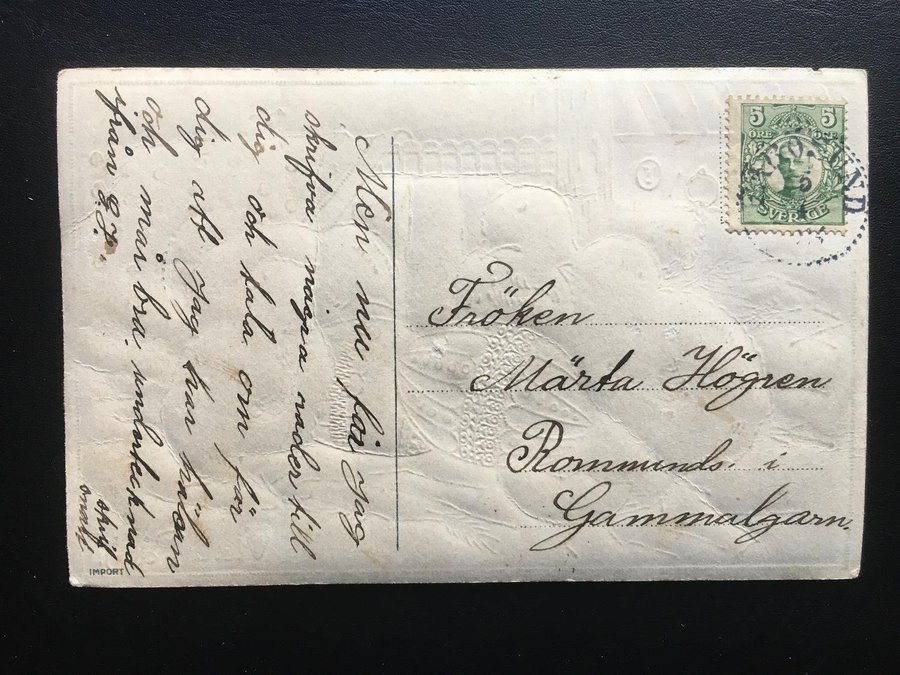 Men nu får Jag
skrifva några rader till
dig och tala om för
dig att Jag har hälsan
och mår bra. undertecknad
ifrån
skrif
snart
5 5
ÖRE ÖRE
SVERIGE
Fröken
Märta Högren
Rommunds. i
Gammalgarn.
IMPORT